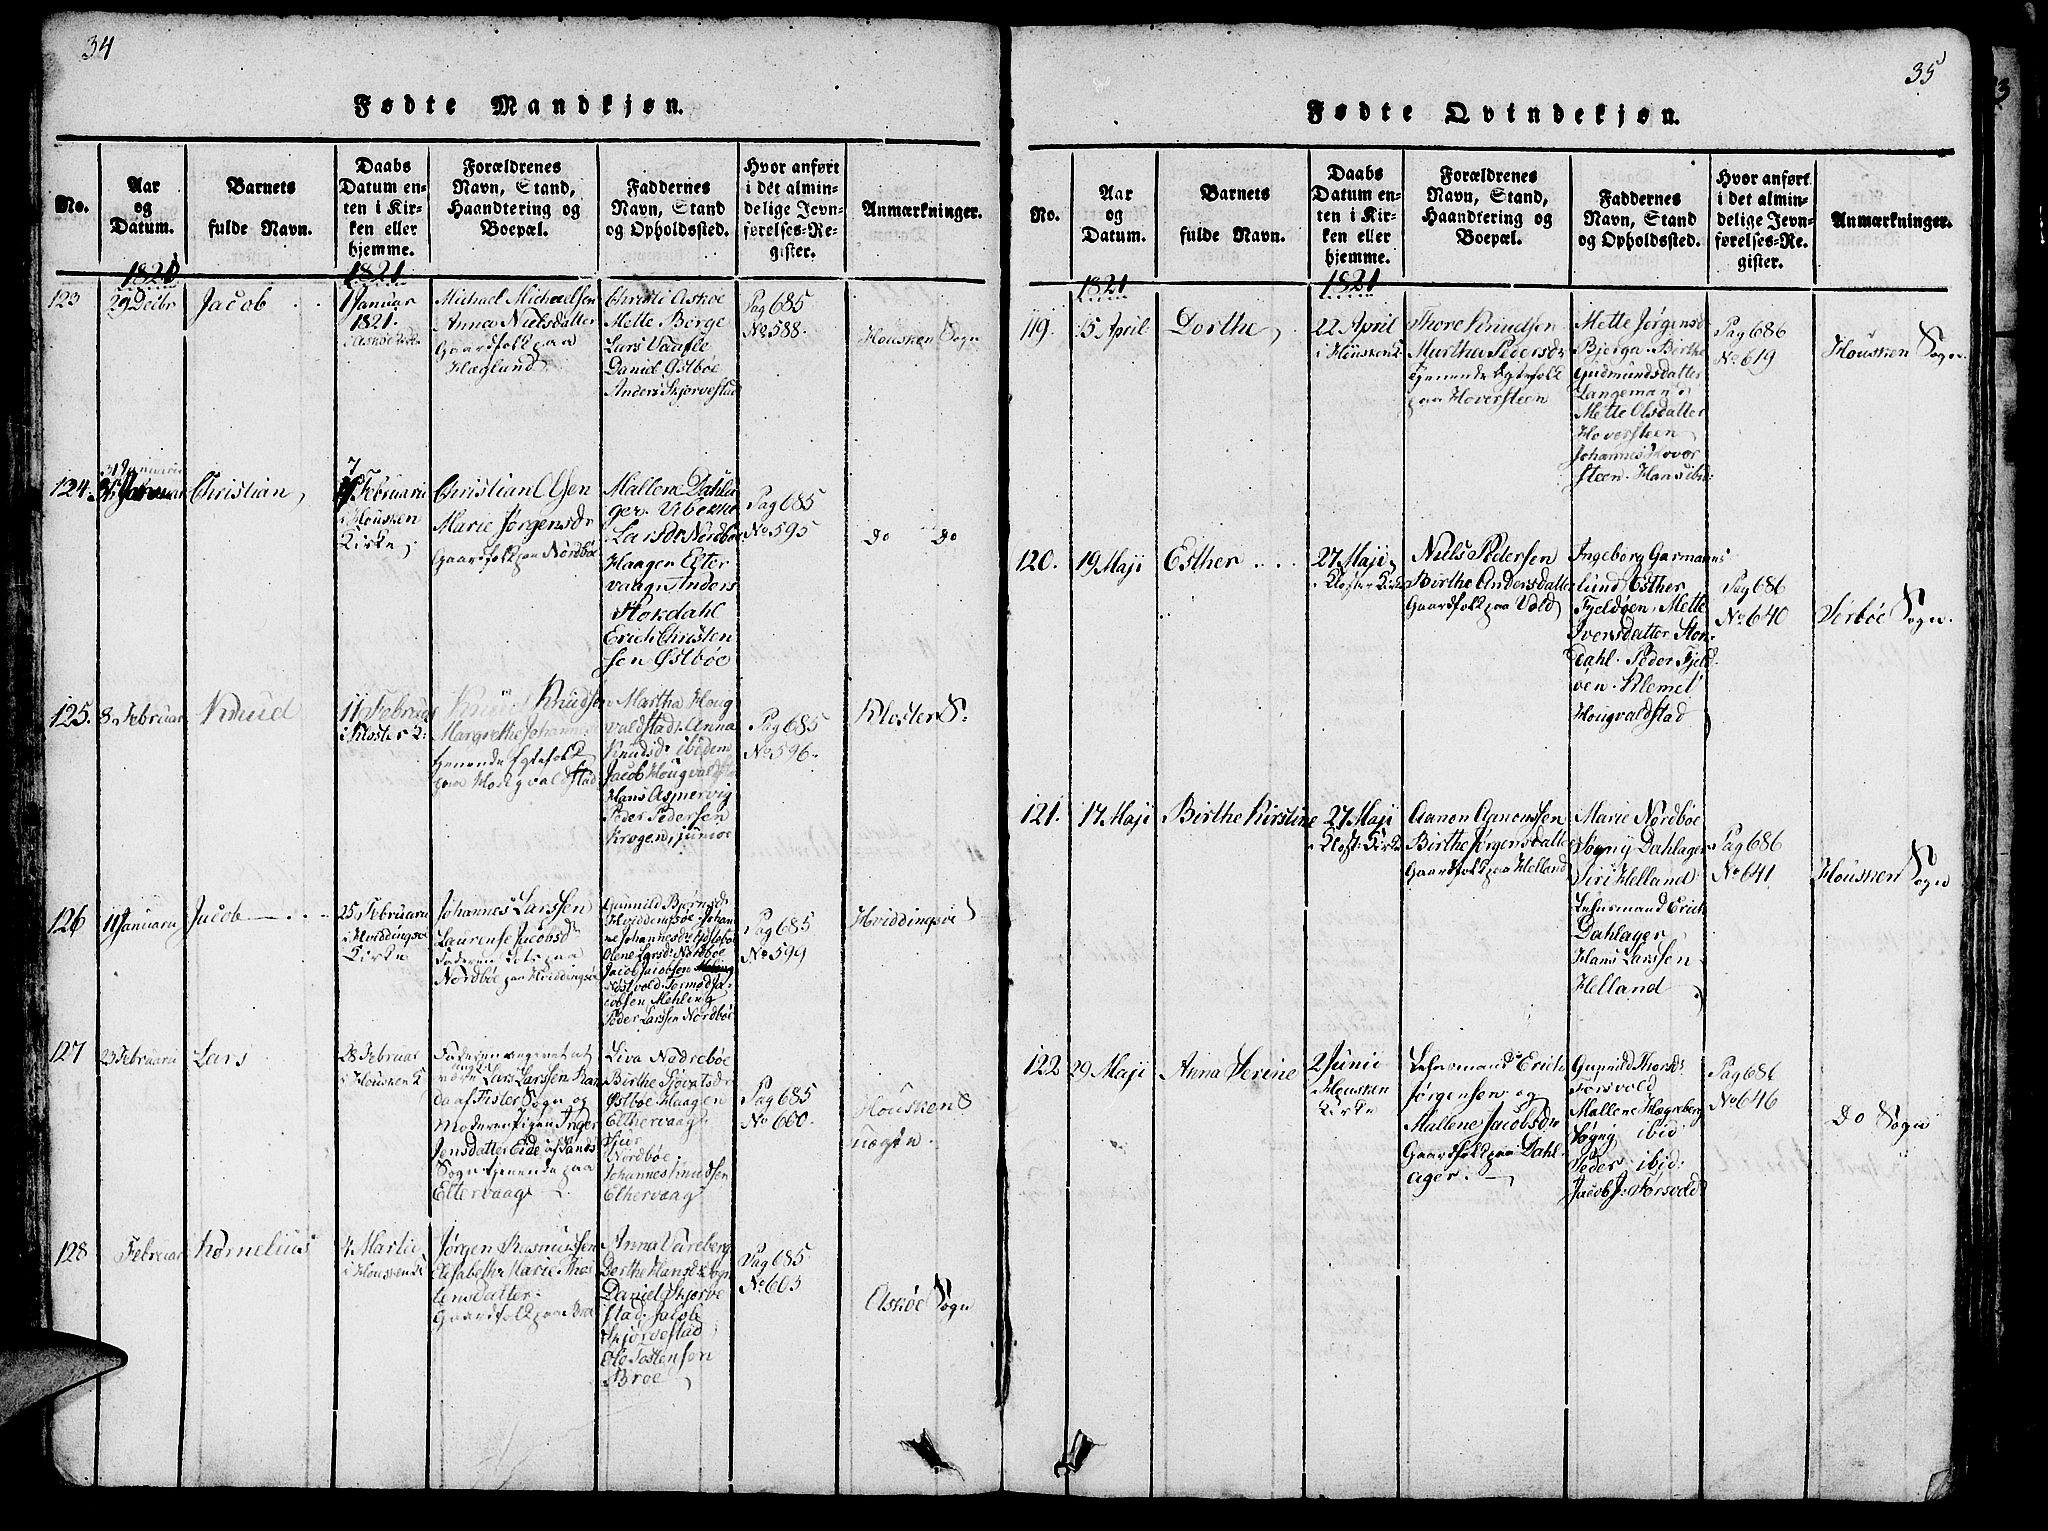 34
Fødte Mandkjøn.
No.
Aar
og
Datum.
Barnets
fulde Navn.
Daabs
Datum en-
ten i Kir-
ken eller
hjemme.
Forældrenes
Navn, Stand,
Haandtering og
Boepæl.
Faddernes
Navn, Stand
og Opholdssted.
Hvor anført
i det almin-
delige Jevn-
førelses-Re-
gister.
Anmærkninger.
1821
123
29 Decbr
Jacob
1 Januar
1821.
Michael Michaelsen
Anna Nielsdatter
Gaardfolk paa
Hæglund
Christi Askøe
Mette Berge
Lars Vaafle
Daniel Østbøe
Anders Skjørvestad
Pag 685
No 588.
Housken Sogn
124.
31 Januarii
Christian,
7
Februarii
i Housken
Kirke,
Christian Olsen
Marie Jørgensdr
Gaardfolk paa Nordbøe
Mallene Dahla
ger.
Larsdr Nordbøe
Haagen Elter
vaag. Anders
Stokdahl
Erich Christen
sen Østbøe
Pag 685
No 595
do do
125.
8 Februar
Knud
11 Februar
i Kloster K:
Knud Knudsen
Margrethe Johannes
tjenende Egtefolk
paa Hougvaldstad
Martha Houg
valdstad. Anna
Knudsdr ibidem
Jacob Hougvaldst
Hans Asmervig
Peder Pedersen
Krogen, junior
Pag 685
No 596.
Kloster S:
126
11 Januarii
Jacob
25 Februarii
i Hviddingsøe
Kirke
Johannes Larssen
Laurense Jacobsdr
Nordbøe paa Hviddingsøe
Gunnild Bjørnsdr
Hviddingsøe. Johan
ne Johannesdr
Olene Larsd: Nordbøe
Jacob Jacobsen
Tormod Ja-
cobsen Mehling
Peder Larssen Nordbøe
Pag 685
No 599
Hviddingsøe S
127
23 Februarii
Lars
28 Februar
i Housken K
Faderen angivet at
være Lars Larssen
da af Fister Sogn og
Moderen Pigen Inger
Jensdatter Eide
Sogn tjenende paa
Eltervaag
Liva Nødrebøe
Birthe Sjøvatsdr
Østbøe Haagen
Elthervaag.
Nordbøe.
Johannes Knudsen
Elthervaag
Pag 685
No 600.
Housken S
128
Februar
Kornelius
4 Martii
i Housken K
Jørgen Rasmussen
Elisabeth Marie
tensdatter.
Gaardfolk paa Broe
Anna Vareberg
Dorthe Hansdr Sogn
Daniel Skjørve
stad. Jacob
Skjørvestad
Ole Tostensen
Broe
Pag 685
No 603
Askøe Sogn
35
Fødte Qvindekjøn.
No.
Aar
og
Datum.
Barnets
fulde Navn.
Daabs
Datum en-
ten i Kir-
ken eller
hjemme.
Forældrenes
Navn, Stand,
Haandtering og
Boepæl.
Faddernes
Navn, Stand
og Opholdssted.
Hvor anført
i det almin-
delige Jevn-
førelses-Re-
gister.
Anmærkninger.
1821
1821
119.
15 April
Dorthe,
22 April
i Housken K
Thore Knudsen
Martha Pedersdr
tjenende Egtefolk
paa Hoversteen
Mette Jørgensd
Bjerga. Birthe
Gudmundsdatter
Langeman
Mette Olsdatter
Hoversteen
Johannes Hover
steen. Hans ibid:
Pag 686
No 619
Housken Sogn
120.
19 Maji
Esther
27 Maji
i Kloster Kirke
Niels Pedersen
Birthe Andersdatter
Gaardfolk paa Vold
Ingeborg Garmanns
lund Esther
Fjeldøen. Mette
Iversdatter Stor
dahl. Peder Fjeld
øen. Klemet
Hougvaldstad
Pag 686
No 640
Sørbøe Sogn.
121.
17 Maji
Birthe Kirstine
27 Maji
i Klost: Kirke
Aanon Aanonsen
Birthe Jørgensdatter
Gaardfolk paa Helland
Marie Nordbøe
Søgny Dahlager
Siri Helland
Lehnsmand Erich
Dahlager
Hans Larssen
Helland
Pag 686
No 641
Housken Sogn
122
29 Maji
Anna Serine
2 Junii
i Housken
Kirke
Lehnsmand Erich
Jørgensen og
Mallene Jacobsdr
Gaardfolk paa Dahl-
ager.
Gunnild Thorsdr
Førsvold
Mallene Hægreberg
Søgny ibid
Peder ibid:
Jacob J: Førsvold
Pag 686
No 646
do Sogn